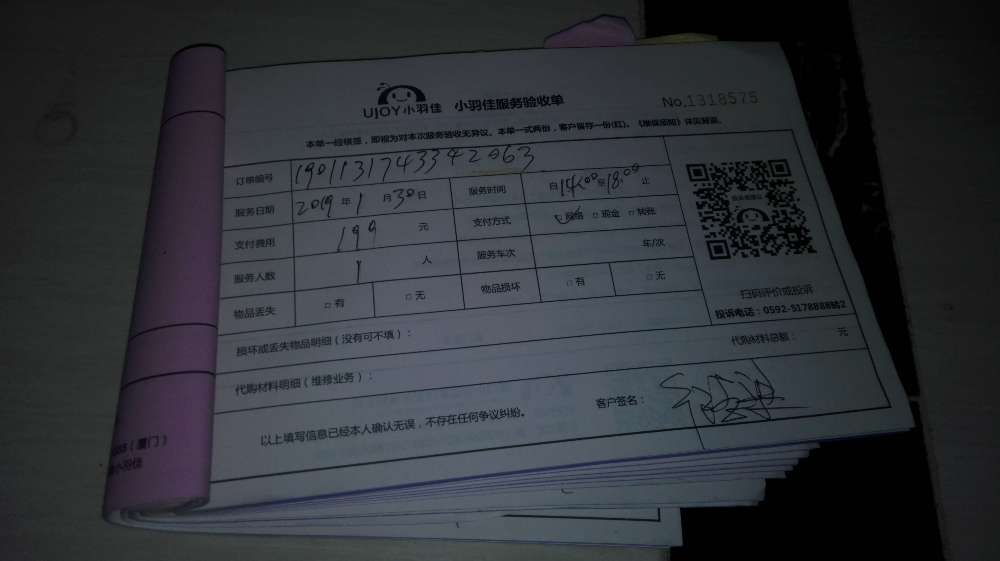 UJOY小羽佳 小羽佳服务验收单 No.1318575
本单一经填签,即视为对本次服务验收无异议。本单一式两份,客户留存一份(红)。《增值须知》详见背面。
订单编号 19011317433442063
服务日期 2019 年 1 月 30 日 服务时间 自 14:00 至 18:00 止
支付费用 199 元 支付方式 ☑网络 □现金 □转账
服务人数 1 人 服务车次 车/次
物品丢失 □有 □无 物品损坏 □有 □无
扫码评价或投诉
投诉电话:0592-5178888转2
损坏或丢失物品明细(没有可不填):
代购材料明细(维修业务): 代购材料总额: 元
以上填写信息已经本人确认无误,不存在任何争议纠纷。 客户签名:
(厦门)
小羽佳